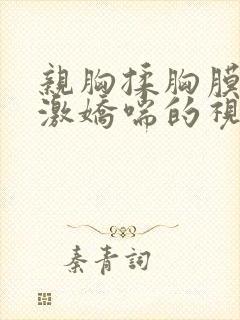 親胸揉胸膜
激嬌喘的視
秦青詞